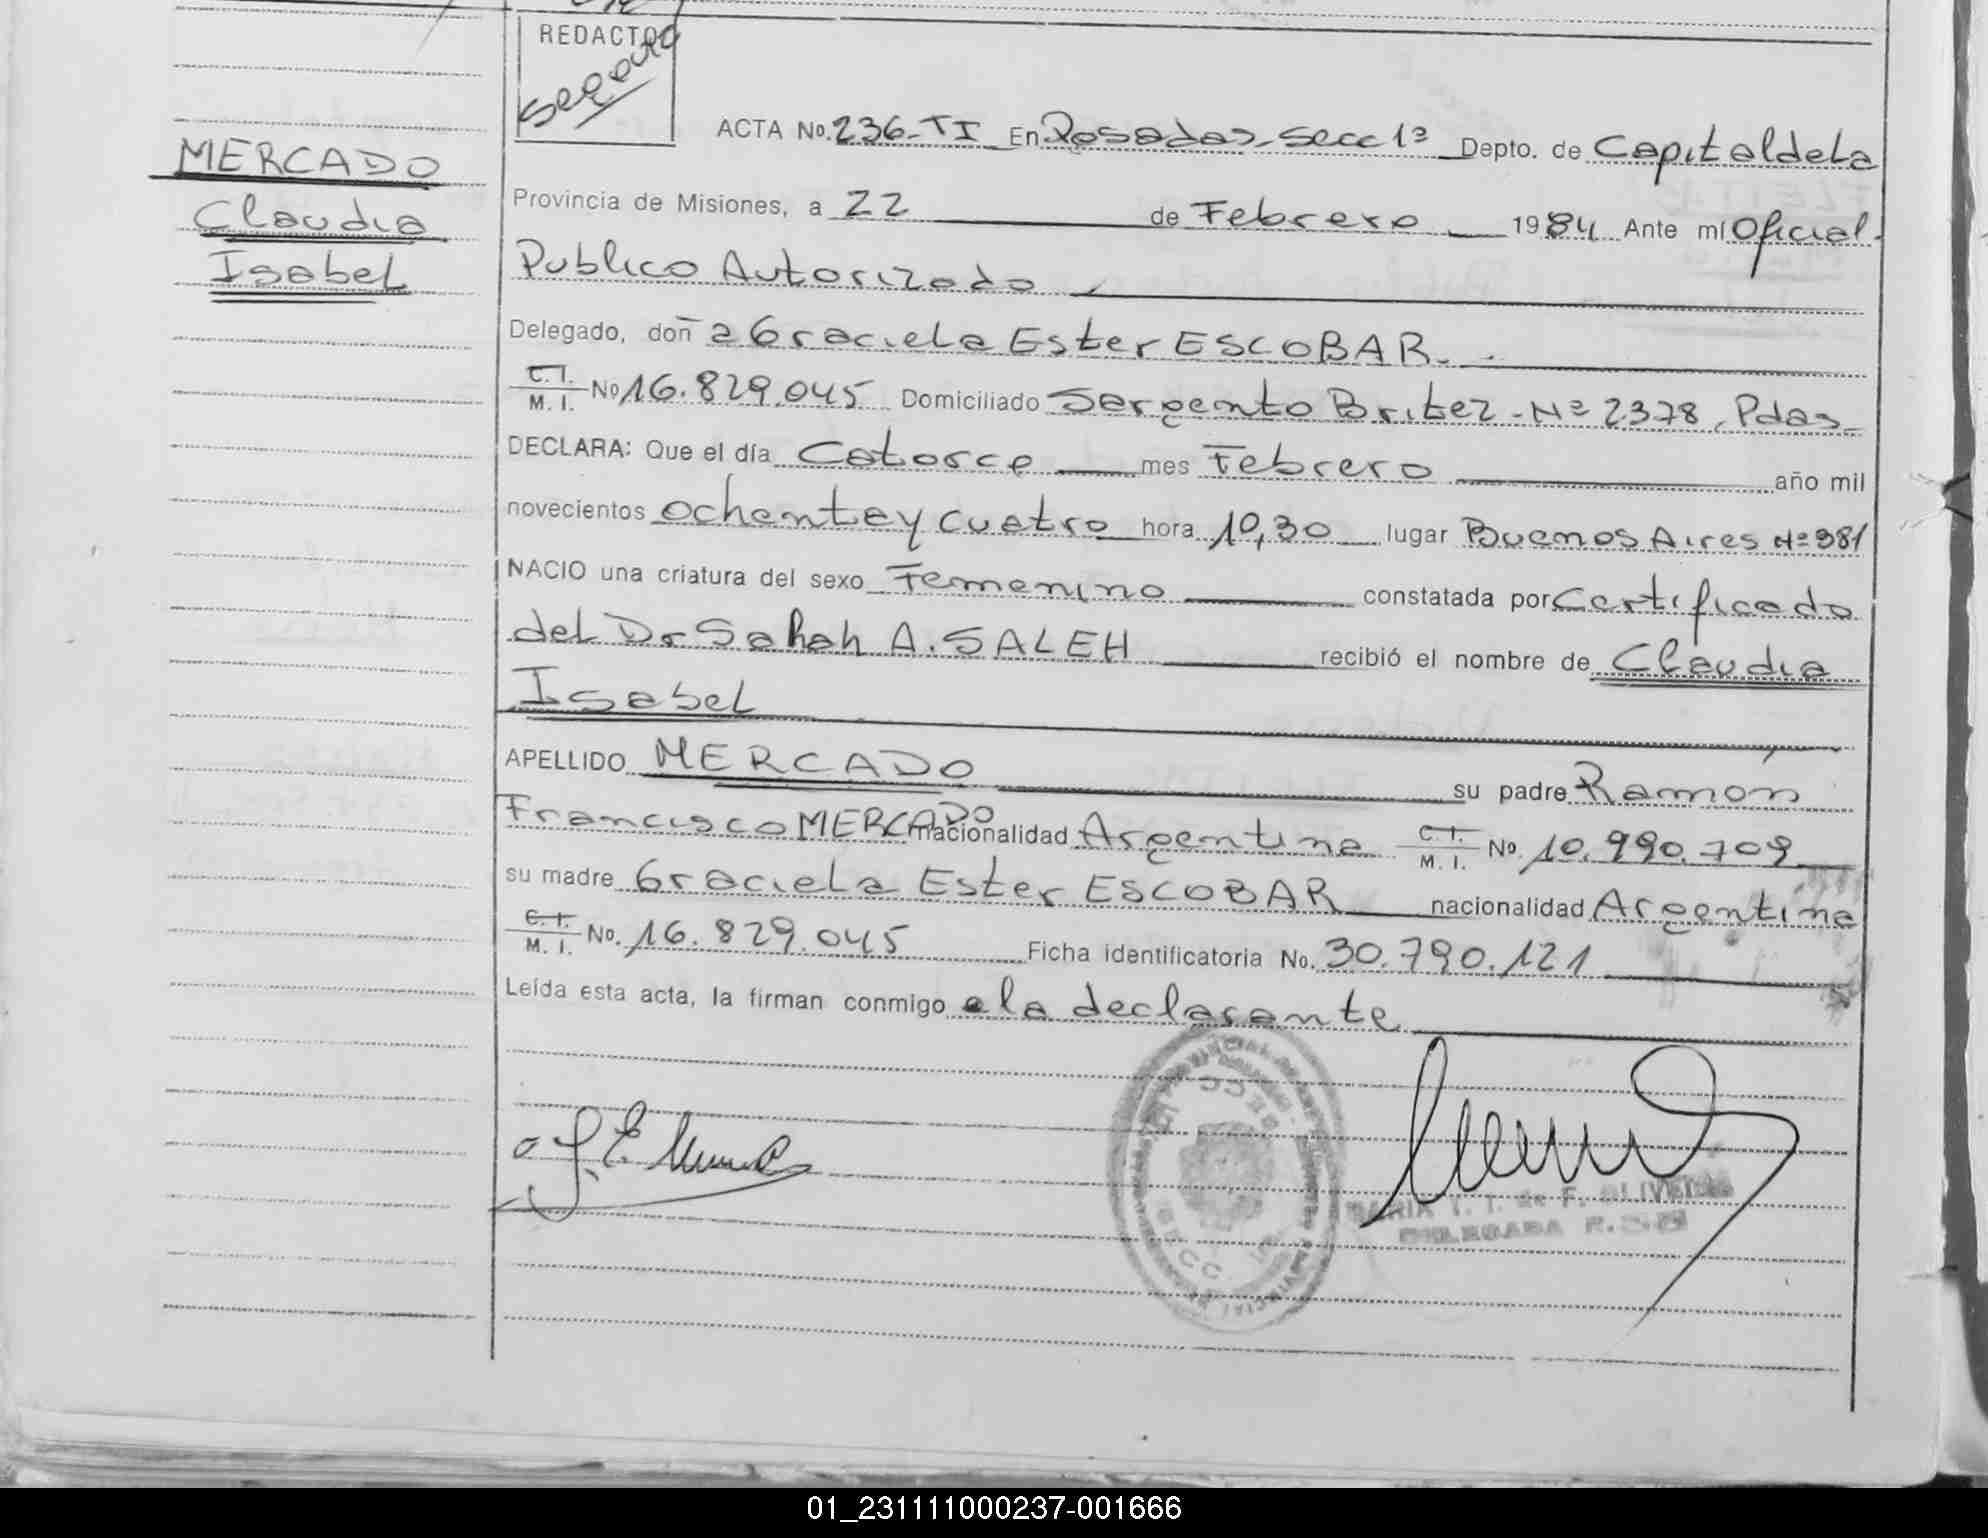 REDACTOR
MERCADO
Claudia
Isabel
ACTA No. 236-TI En Posadas, Secc 1ª Depto. de Capital de La
Provincia de Misiones, a 22 de Febrero 1984 Ante mí Oficial
Publico Autorizado
Delegado, don a Graciela Ester ESCOBAR.
C.I. M. I. No 16.829.045 Domiciliado Sargento Britez - Nº 2378, Pdas
DECLARA: Que el día Catorce mes Febrero año mil
novecientos ochenta y cuatro hora 10,30 lugar Buenos Aires Nº 981
NACIO una criatura del sexo Femenino constatada por Certificado
del Dr A. SALEH recibió el nombre de Claudia
Isabel
APELLIDO MERCADO su padre Ramón
Francisco MERCADO nacionalidad Argentina C.I. M. I. No. 10.990.709
su madre Graciela Ester ESCOBAR nacionalidad Argentina
C.I. M. I. No. 16.829.045 Ficha identificatoria No. 30.790.121
Leída esta acta, la firman conmigo la declarante
MARIA T. I. de F. OLIVEIRA
DELEGADA
SECC. 1ª
01_231111000237-001666